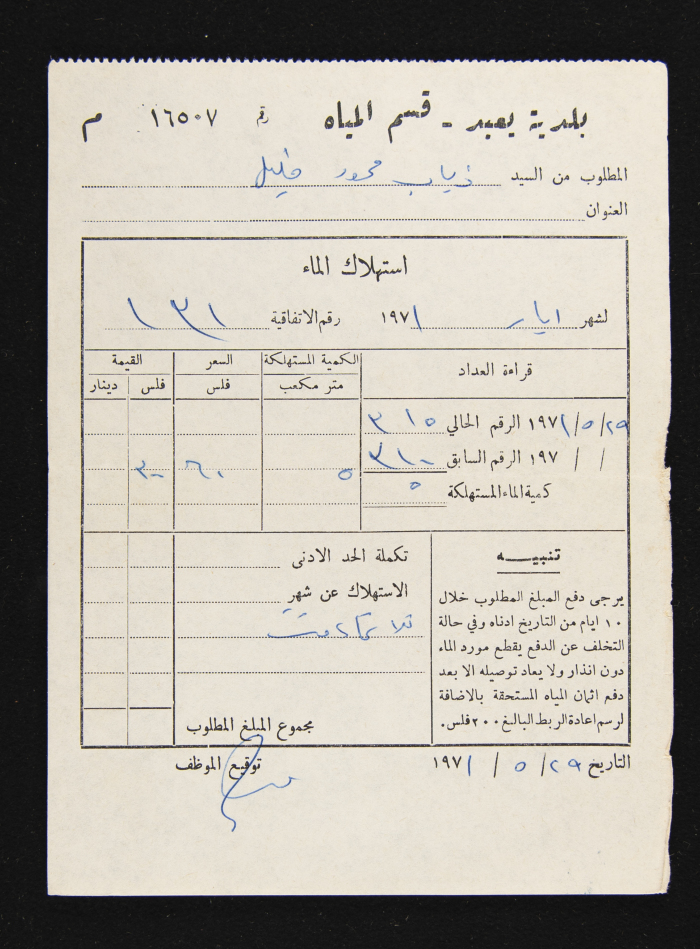 بلدية يعبد - قسم المياه رقم ١٦٥٠٧ م
المطلوب من السيد ذياب محمود خليل
العنوان
استهلاك الماء
لشهر ايار ١٩٧١ رقم الاتفاقية ١٣١
قراءة العداد الكمية المستهلكة السعر القيمة
متر مكعب فلس فلس دينار
٢٩/٥/١٩٧١ الرقم الحالي ٣١٥
/ / ١٩٧ الرقم السابق ٣١٠ ٥ ٦٠ ٣٠٠
كمية الماء المستهلكة ٥
تنبيـــه
يرجى دفع المبلغ المطلوب خلال
١٠ ايام من التاريخ ادناه وفي حالة
التخلف عن الدفع يقطع مورد الماء
دون انذار ولا يعاد توصيله الا بعد
دفع اثمان المياه المستحقة بالاضافة
لرسم اعادة الربط البالغ ٢٠٠ فلس.
تكملة الحد الادنى
الاستهلاك عن شهر
مجموع المبلغ المطلوب
التاريخ ٢٩/ ٥ / ١٩٧١ توقيع الموظف